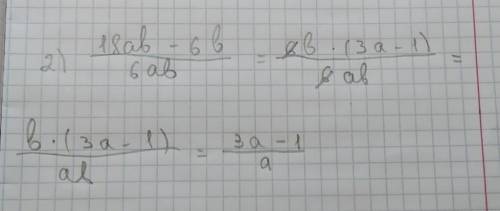 2) (18ab - 6b)/(6ab) = (6b · (3a - 1))/(6ab) =
(b · (3a - 1))/(ab) = (3a - 1)/a